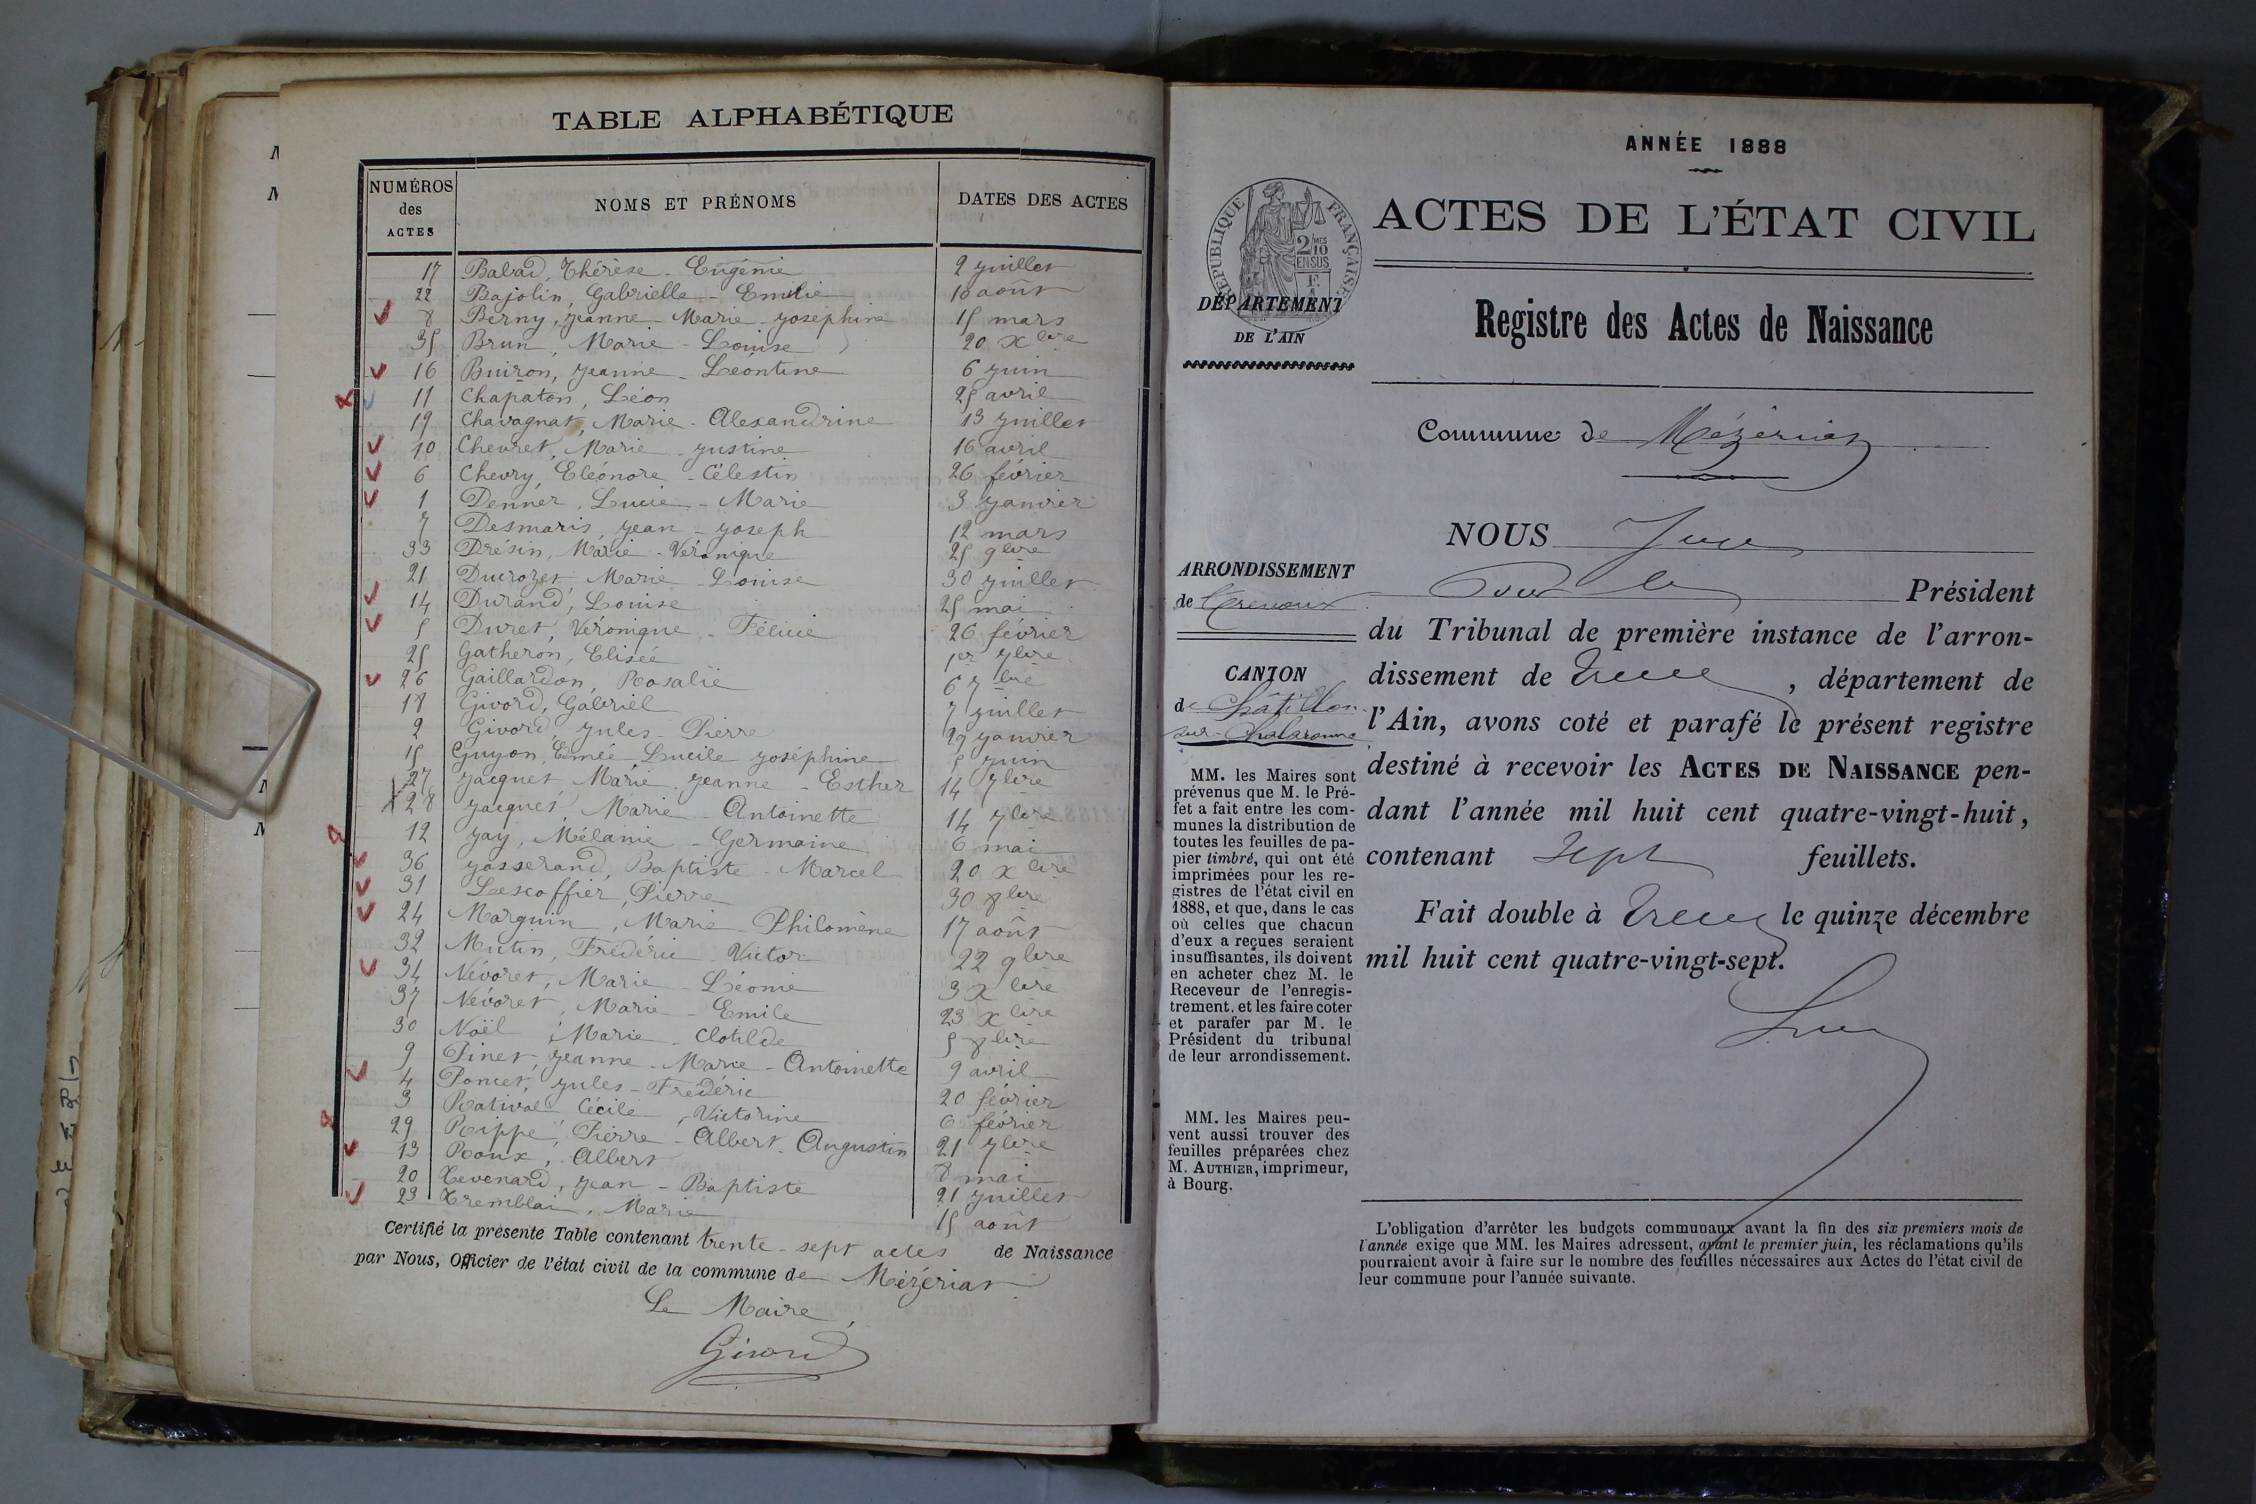 TABLE ALPHABÉTIQUE
NUMÉROS des ACTES
NOMS ET PRÉNOMS
DATES DES ACTES
17 Babad, Thérèse - Eugénie 2 juillet
22 Bajolin, Gabrielle - Emilie 10 août
8 Berny, Jeanne - Marie - Joséphine 15 mars
35 Brun, Marie - Louise 20 Xbre
16 Buiron, Jeanne - Léontine 6 juin
11 Chapaton, Léon 25 avril
19 Chavagnat, Marie - Alexandrine 13 juillet
10 Chevret, Marie - Justine 16 avril
6 Chevry, Eléonore - Célestin 26 février
1 Denner, Lucie - Marie 3 janvier
7 Desmaris, Jean - Joseph 12 mars
33 Drésin, Marie - Véronique 25 9bre
21 Ducrozet, Marie - Louise 30 juillet
14 Durand, Louise 25 mai
5 Duret, Véronique - Félicie 26 février
25 Gatheron, Elisée 1er 7bre
26 Gaillardon, Rosalie 6 7bre
18 Givord, Gabriel 7 juillet
2 Givord, Jules - Pierre 27 janvier
15 Guyon, Emée, Lucile Joséphine 5 juin
27 Jacquet Marie Jeanne - Esther 14 7bre
28 Jacquet, Marie - Antoinette 14 7bre
12 Jay, Mélanie - Germaine 6 mai
36 Josserand, Baptiste - Marcel 20 Xbre
31 Lescoffier, Pierre 30 8bre
24 Marguin, Marie - Philomène 17 août
32 Mutin, Frédéric - Victor 22 9bre
34 Névoret, Marie - Léonie 3 Xbre
37 Névoret, Marie - Emile 23 Xbre
30 Noël, Marie - Clotilde 5 8bre
9 Pinet, Jeanne - Marie - Antoinette 9 avril
4 Poncet, Jules - Frédéric 20 février
3 Ratival Cécile, Victorine 6 février
29 Rippe, Pierre - Albert - Augustin 21 7bre
13 Roux, Albert 8 mai
20 Tevenard, Jean - Baptiste 21 juillet
23 Tremblai, Marie 15 août
Certifié la présente Table contenant trente-sept actes de Naissance
par Nous, Officier de l'état civil de la commune de Mézériat
Le Maire,
Givord
ANNÉE 1888
ACTES DE L'ÉTAT CIVIL
RÉPUBLIQUE FRANÇAISE
2MES
10
EN SUS
DÉPARTEMENT
DE L'AIN
Registre des Actes de Naissance
Commune de Mézériat
NOUS
ARRONDISSEMENT
de Trévoux
Président
du Tribunal de première instance de l'arron-
CANTON
de Châtillon
sur-Chalaronne
dissement de Trévoux, département de
l'Ain, avons coté et parafé le présent registre
destiné à recevoir les ACTES DE NAISSANCE pen-
dant l'année mil huit cent quatre-vingt-huit,
contenant Sept feuillets.
Fait double à Trévoux le quinze décembre
mil huit cent quatre-vingt-sept.
MM. les Maires sont
prévenus que M. le Pré-
fet a fait entre les com-
munes la distribution de
toutes les feuilles de pa-
pier timbré, qui ont été
imprimées pour les re-
gistres de l'état civil en
1888, et que, dans le cas
où celles que chacun
d'eux a reçues seraient
insuffisantes, ils doivent
en acheter chez M. le
Receveur de l'enregis-
trement, et les faire coter
et parafer par M. le
Président du tribunal
de leur arrondissement.
MM. les Maires peu-
vent aussi trouver des
feuilles préparées chez
M. AUTHIER, imprimeur,
à Bourg.
L'obligation d'arrêter les budgets communaux avant la fin des six premiers mois de
l'année exige que MM. les Maires adressent, avant le premier juin, les réclamations qu'ils
pourraient avoir à faire sur le nombre des feuilles nécessaires aux Actes de l'état civil de
leur commune pour l'année suivante.